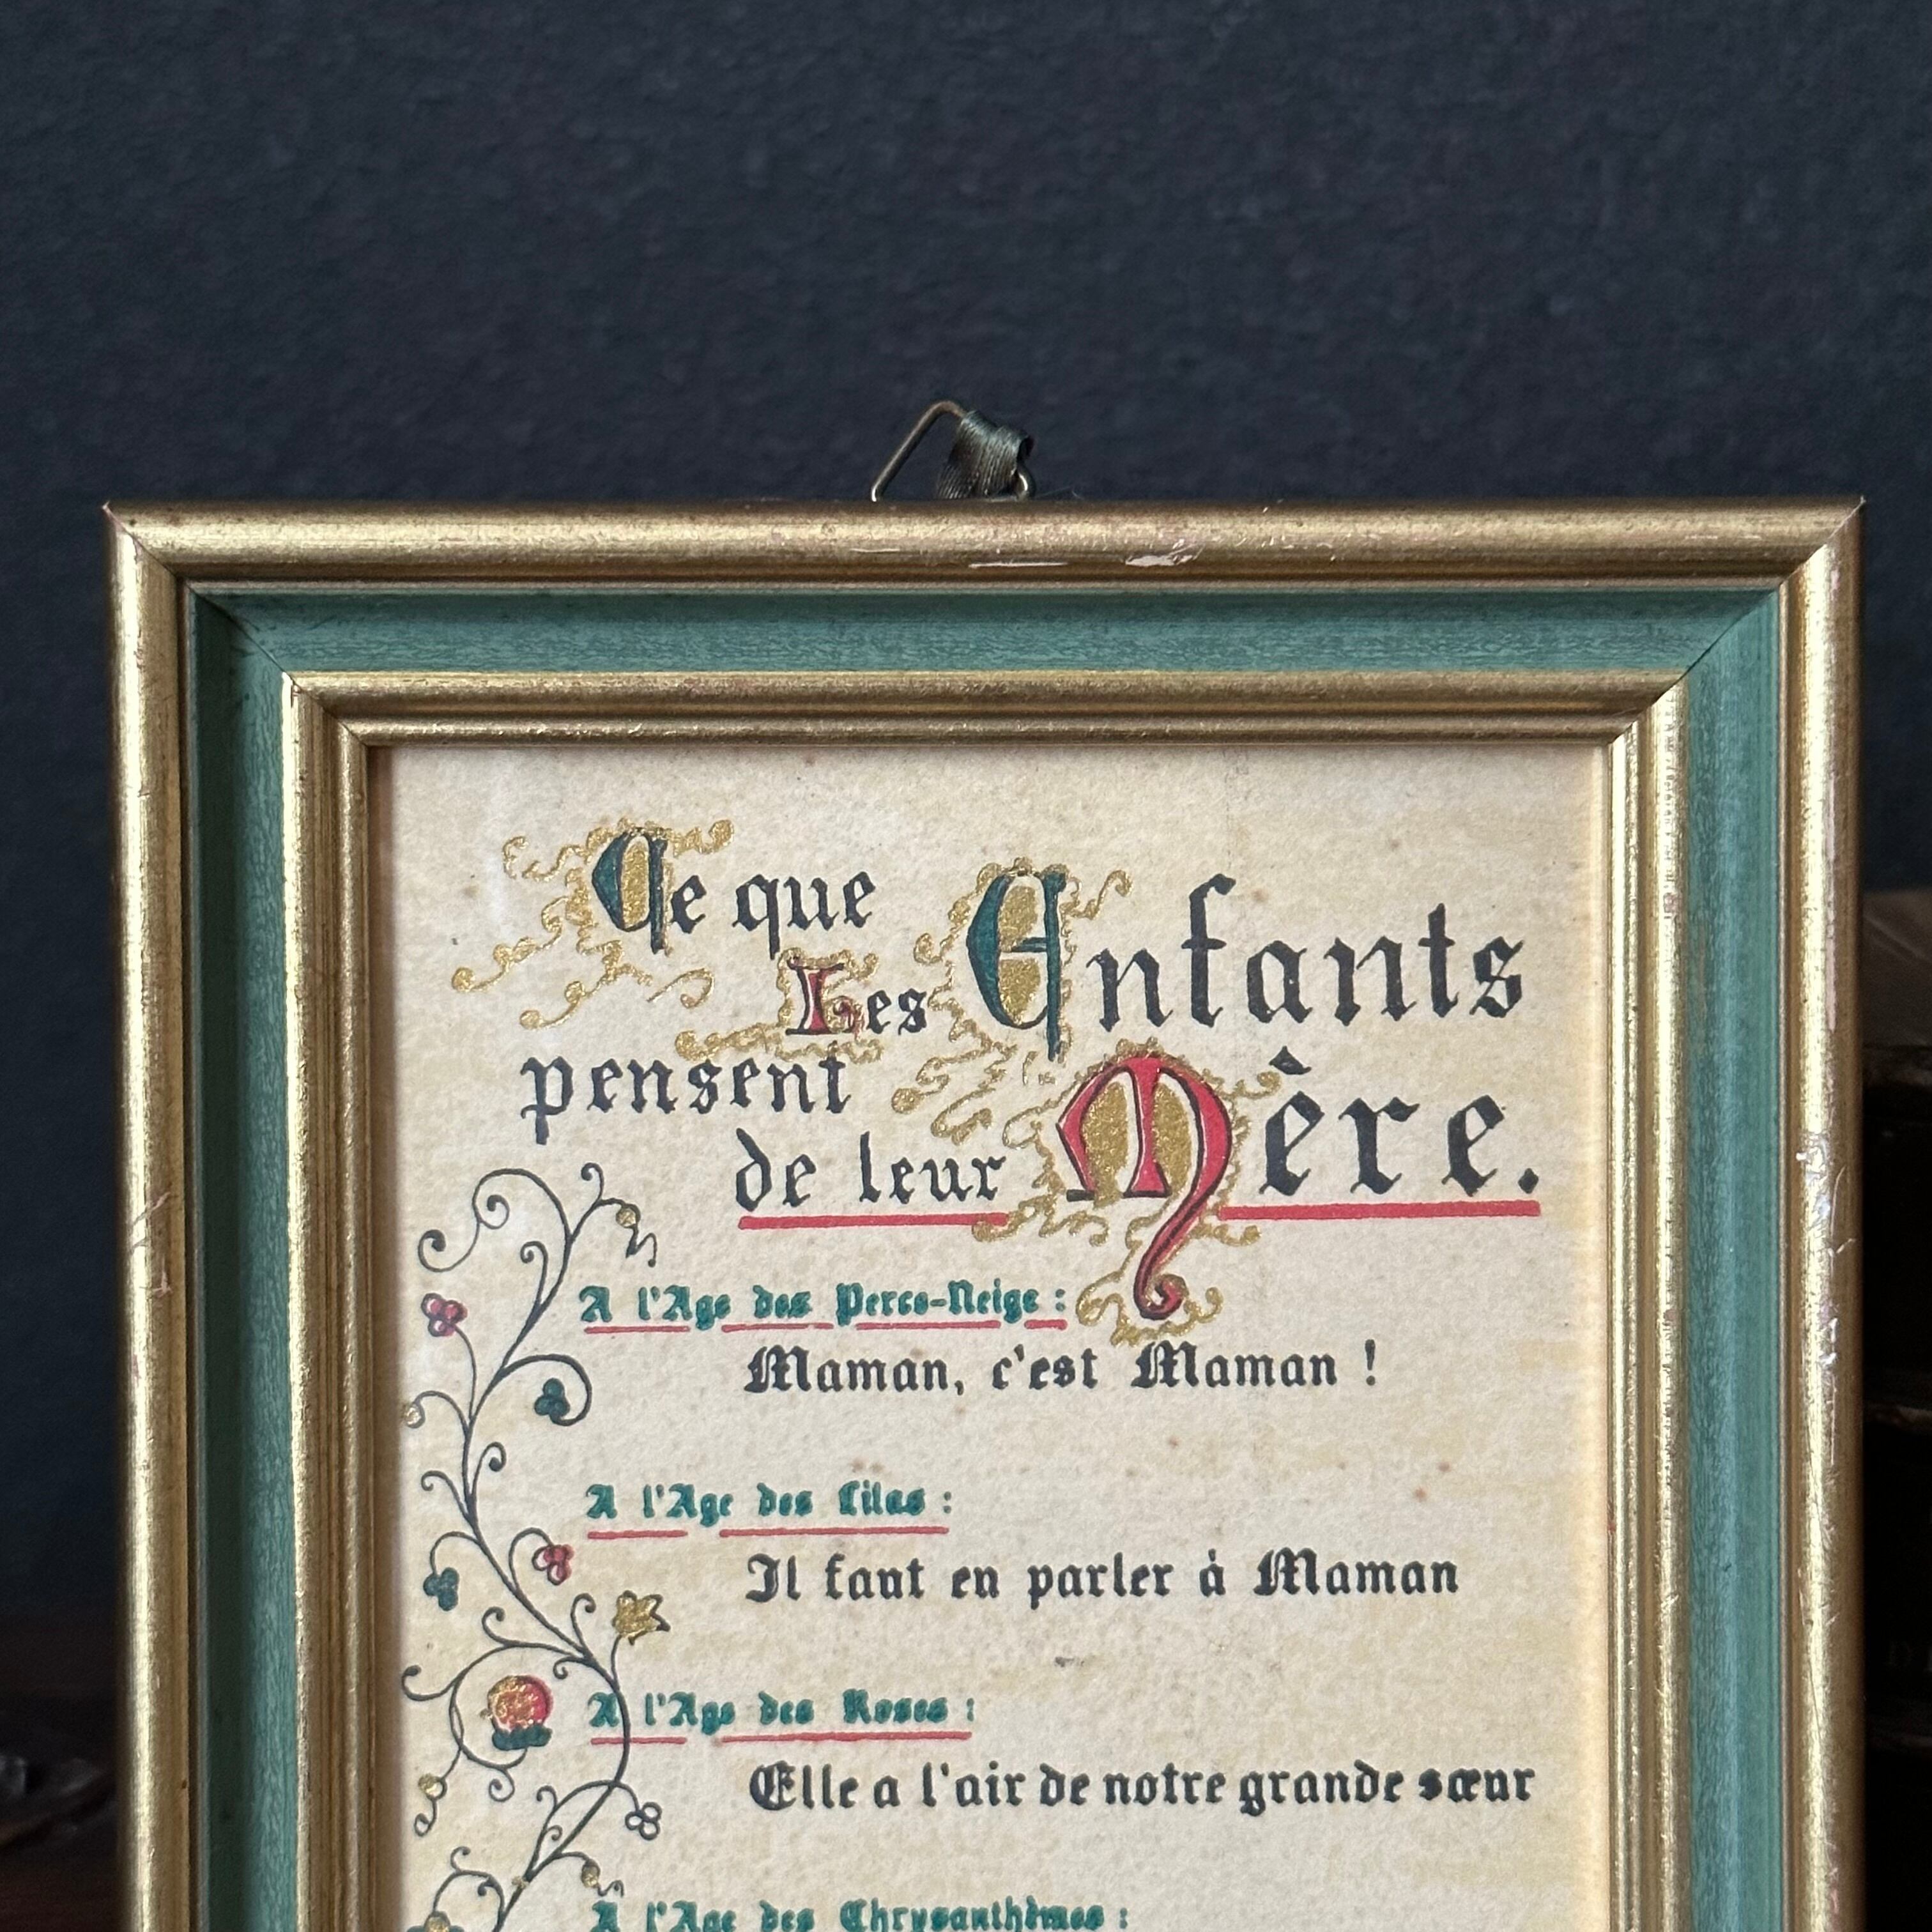 Ce que
Les Enfants
pensent
de leur Mère.
A l'Age des Perce-Neige :
Maman, c'est Maman !
A l'Age des Lilas :
Il faut en parler à Maman
A l'Age des Roses :
Elle a l'air de notre grande sœur
A l'Age des Chrysanthèmes :